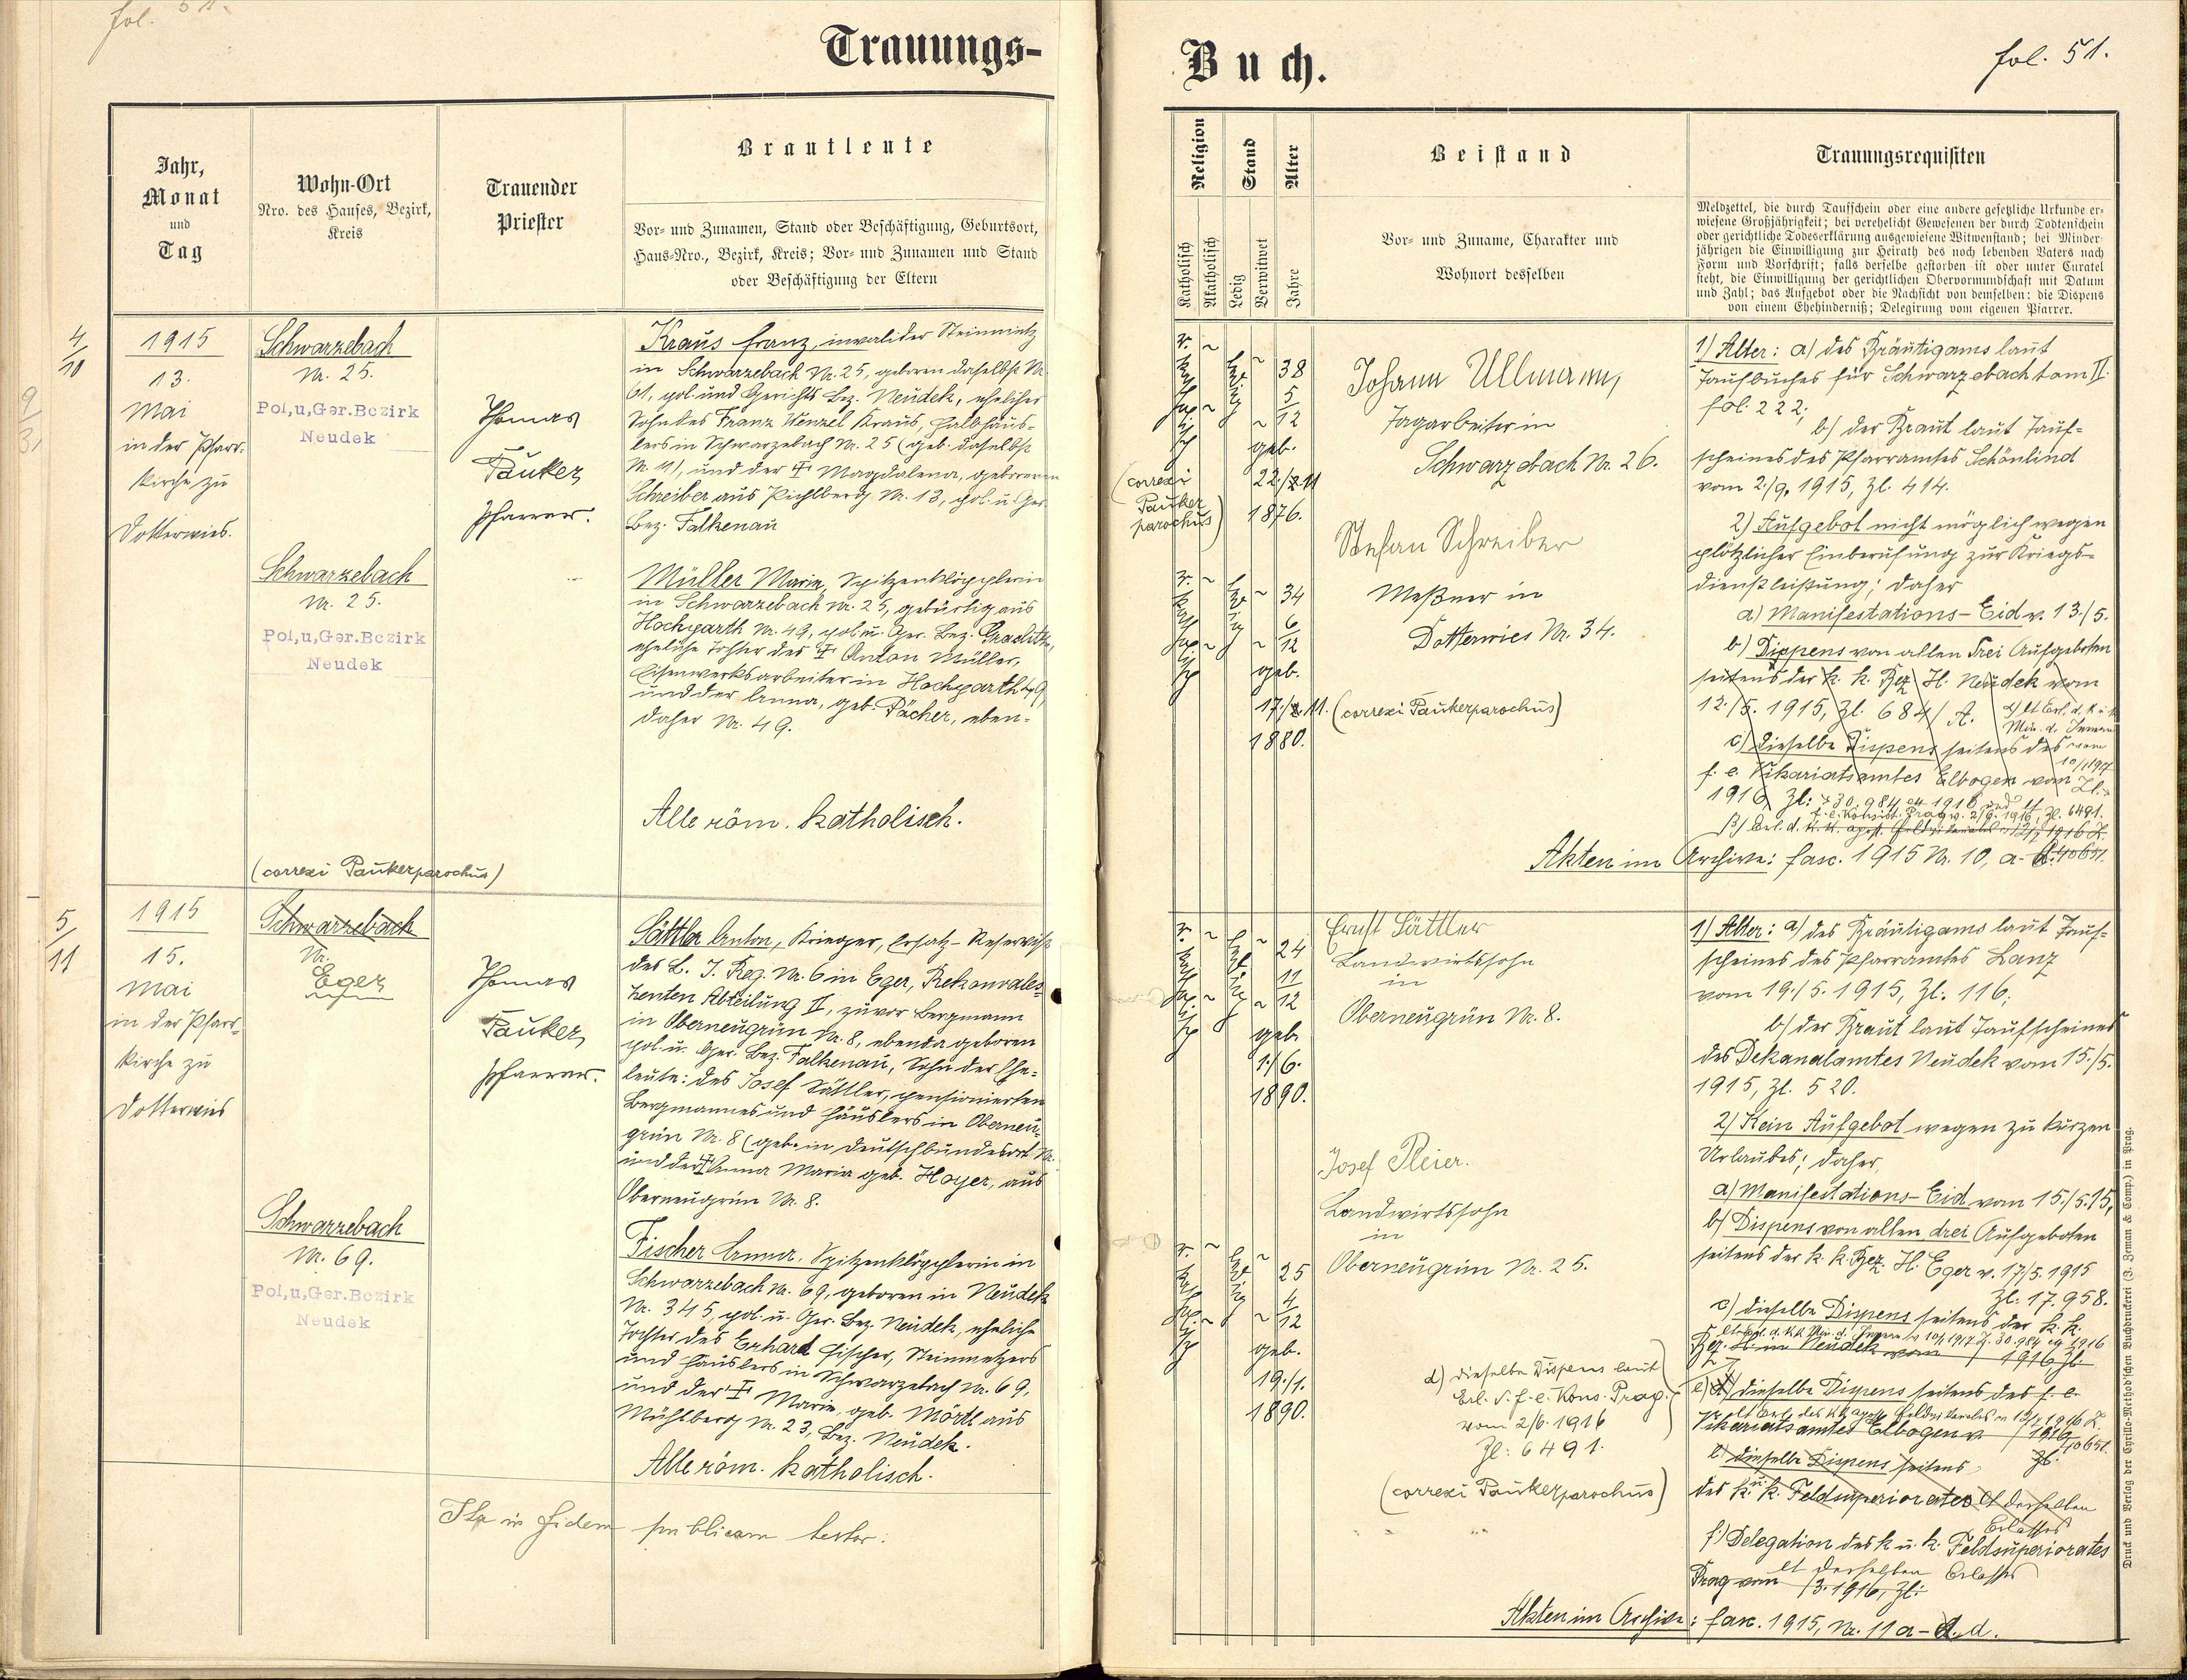 fol. 51.
Trauungs-
Jahr,
Monat
und
Tag
Wohn-Ort
Nro. des Hauses, Bezirk,
Kreis
Trauender
Priester
Brautleute
Vor- und Zunamen, Stand oder Beschäftigung, Geburtsort,
Haus-Nro., Bezirk, Kreis; Vor- und Zunamen und Stand
oder Beschäftigung der Eltern
4/10
1915
13.
Mai
in der Pfarr-
kirche zu
Dotterwies.
Schwarzebach
Nr. 25.
Pol,u,Ger.Bezirk
Neudek
Thomas
Pauker
Pfarrer.
Kraus Franz, invalider Steinmetz
in Schwarzebach Nr. 25, geboren daselbst Nr.
61, pol. und Gerichts Bez. Neudek, ehelicher
Sohn des Franz Wenzel Kraus, Halbhäus-
lers in Schwarzebach Nr. 25 (geb. daselbst
Nr. 11), und der † Magdalena, geborenen
Schreiber aus Pichlberg Nr. 13, pol. u. Ger.
Bez. Falkenau
Schwarzebach
Nr. 25.
Pol,u,Ger.Bezirk
Neudek
Müller Marie, Spitzenklöpplerin
in Schwarzebach Nr. 25, gebürtig aus
Hochgarth Nr. 49, pol. u. Ger. Bez. Graslitz,
eheliche Tochter des † Anton Müller,
Eisenwerksarbeiter in Hochgarth 49,
und der Anna, geb. Pächer, eben-
daher Nr. 49.
Alle röm. katholisch.
(correxi Pauker parochus)
5/11
1915
15.
Mai
in der Pfarr-
kirche zu
Dotterwies
Schwarzebach
Nr.
Eger
Thomas
Pauker
Pfarrer.
Sattler Anton, Krieger, Ersatz-Reservist
des L. I. Reg. Nr. 6 in Eger, Rekonvales-
zenten Abteilung II, zuvor Bergmann
in Oberneugrün Nr. 8, ebenda geboren
pol. u. Ger. Bez. Falkenau, Sohn der Ehe-
leute: des Josef Sattler, pensionierten
Bergmannes und Häuslers in Oberneu-
grün Nr. 8 (geb. in Deutschbundesort Nr.
und der † Anna Maria geb. Hoyer, aus
Oberneugrün Nr. 8.
Schwarzebach
Nr. 69.
Pol,u,Ger.Bezirk
Neudek
Fischer Anna, Spitzenklöpplerin in
Schwarzebach Nr. 69, geboren in Neudek
Nr. 345, pol. u. Ger. Bez. Neudek, eheliche
Tochter des Erhard Fischer, Steinmetzers
und Häuslers in Schwarzebach Nr. 69,
und der † Marie, geb. Mördl aus
Mühlberg Nr. 23, Bez. Neudek.
Alle röm. katholisch.
Ita in fidem publicam testor:
Buch.
fol. 51.
Religion
Stand
Alter
Katholisch
Akatholisch
Ledig
Verwitwet
Jahre
Beistand
Vor- und Zuname, Charakter und
Wohnort desselben
Trauungsrequisiten
Meldzettel, die durch Taufschein oder eine andere gesetzliche Urkunde er-
wiesene Großjährigkeit; bei verehelicht Gewesenen der durch Todtenschein
oder gerichtliche Todeserklärung ausgewiesene Witwenstand; bei Minder-
jährigen die Einwilligung zur Heirath des noch lebenden Vaters nach
Form und Vorschrift; falls derselbe gestorben ist oder unter Curatel
steht, die Einwilligung der gerichtlichen Obervormundschaft mit Datum
und Zahl; das Aufgebot oder die Nachsicht von demselben: die Dispens
von einem Ehehinderniß; Delegirung vom eigenen Pfarrer.
r. katholisch
ledig
38
5/12
geb.
22./11
1876.
(correxi
Pauker
parochus)
Johann Ullmann,
Tagarbeiter in
Schwarzebach Nr. 26.
Stefan Schreiber
Meßner in
Dotterwies Nr. 34.
r. katholisch
ledig
34
6/12
geb.
17./11. (correxi Pauker parochus)
1880.
1) Alter: a) des Bräutigams laut
Taufbuches für Schwarzebach tom II.
fol. 222;
b) der Braut laut Tauf-
scheines des Pfarramtes Schönlind
vom 2./9. 1915, Zl. 414.
2) Aufgebot nicht möglich wegen
plötzlicher Einberufung zur Kriegs-
dienstleistung; daher
a) Manifestations-Eid v. 13./5.
b) Dispens von allen drei Aufgeboten
seitens der k. k. Bez. H. Neudek vom
12./5. 1915, Zl. 684/A.
α) lt Erl. d. k. u. k.
Min. d. Innern
vom
10/1 1917
c) dieselbe Dispens seitens des
f. e. Vikariatsamtes Elbogen vom
1916, Zl: 30.984 ex 1916 und lt
f. e. Konsist. Prag v. 2/6. 1916, Zl. 6491.
β) Erl. d. k. k. apost. Feldvikariates v. 12/7 1916 Z.
10651.
Akten im Archive: fasc. 1915 Nr. 10, a-d.
r. katholisch
ledig
24
11/12
geb.
1./6.
1890.
Ernst Sattler
Landwirtssohn
in
Oberneugrün Nr. 8.
Josef Pleier.
Landwirtssohn
in
Oberneugrün Nr. 25.
r. katholisch
ledig
25
4/12
geb.
19./1.
1890.
d) dieselbe Dispens laut
Erl. d. f. e. Kons. Prag.
vom 2/6. 1916
Zl: 6491.
(correxi Pauker parochus)
1) Alter: a) des Bräutigams laut Tauf-
scheines des Pfarramtes Lanz
vom 19./5. 1915, Zl. 116;
b) der Braut laut Taufscheines
des Dekanalamtes Neudek vom 15./5.
1915, Zl. 520.
2) Kein Aufgebot wegen zu kurzen
Urlaubes; daher
a) Manifestations-Eid vom 15./5. 15,
b) Dispens von allen drei Aufgeboten
seitens der k. k. Bez. H. Eger v. 17/5. 1915
Zl. 17.958.
c) dieselbe Dispens seitens der k. k.
lt Erl. d. k. k. Min. d. Innern v. 10/1 1917 Z. 30.984 ex 1916
Bez. H. in Neudek vom 1916, Zl.
e) d) dieselbe Dispens seitens des f. e.
lt Erl. des k. k. apost. Feldvikariates v. 12/7 1916 Z.
10651.
Vikariatsamtes Elbogen v. 1916
Zl.
e) dieselbe Dispens seitens
des k. u. k. Feldsuperiorates lt desselben
Erlasses
f) Delegation des k. u. k. Feldsuperiorates
lt desselben Erlasses
Prag vom /3. 1916, Zl:
Akten im Archive: fasc. 1915, Nr. 11 a-d.
Druck und Verlag der Cyrillo-Method'schen Buchdruckerei (J. Zeman & Comp.) in Prag.